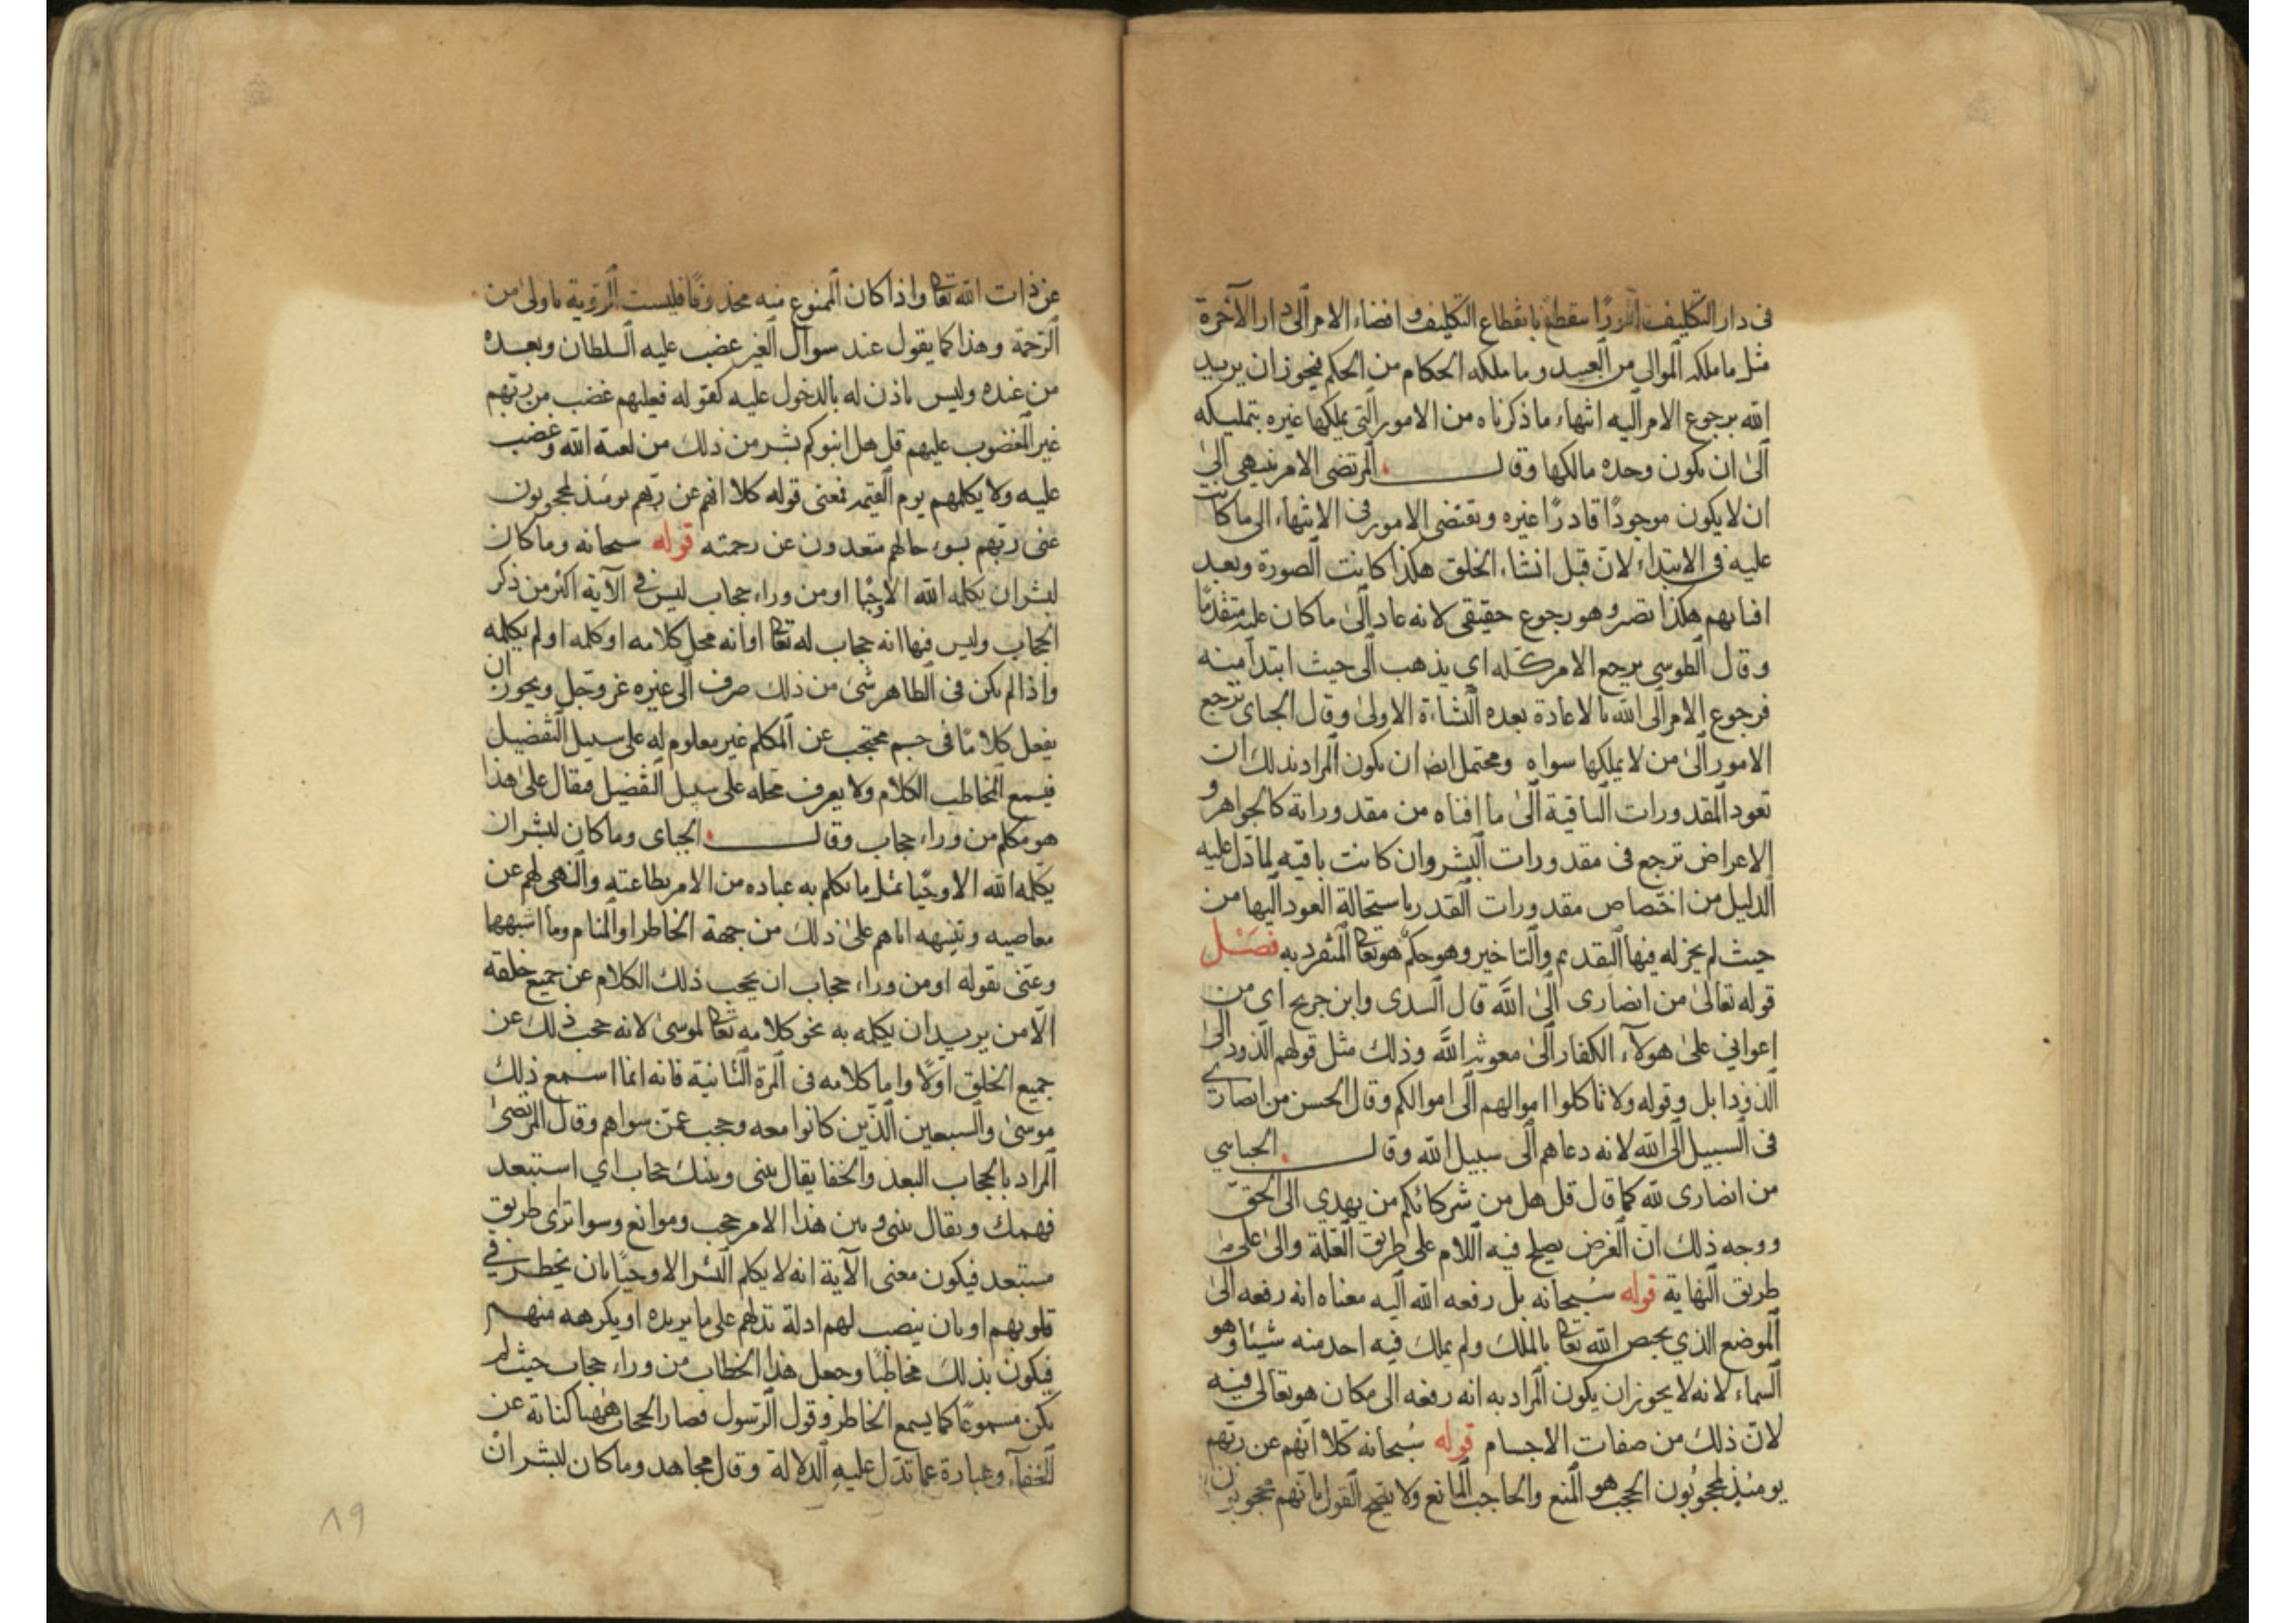 فى دار التكليف امورًا ينقطع بانقطاع التكليف و افضاء الامر الى دار الآخرة
مثل ما ملكه الموالى من العبيد وما ملكه الحكام من الحكم فيجوز ان يريد
الله برجوع الامر اليه انتهاء ما ذكرناه من الامور التى يملكها غيره بتمليكه
الى ان يكون وحده مالكها وقال المرتضى الامر ينتهى الى
ان لا يكون موجودًا قادرًا غيره وتقتضى الامور فى الانتهاء الى ما كانت
عليه فى الابتداء لان قبل انشاء الخلق هكذا كانت الصورة وبعد
افنائهم هكذا تصير وهو رجوع حقيقى لانه عاد الى ما كان عليه متقدمًا
وقال الطوسى يرجع الامر كله اي يذهب الى حيث ابتدأ منه
فرجوع الامر الى الله بالاعادة بعده النشاءة الاولى وقال الجباى ترجع
الامور الى من لا يملكها سواه ومحتمل ايضا ان يكون المراد بذلك ان
تعود المقدورات الباقية الى ما افناه من مقدوراته كالجواهر و
الاعراض ترجع فى مقدورات البشر وان كانت باقيه لما دل عليه
الدليل من اختصاص مقدورات القدر باستحالة العود اليها من
حيث لم يجز له فيها التقديم والتاخير وهو حكم هو تعالى المنفرد به فصل
قوله تعالى من انصارى الى الله قال السدى وابن جريج اي من
اعواني على هولآء الكفار الى معونة الله وذلك مثل قولهم الذود الى
الذود ابل وقوله ولا تاكلوا اموالهم الى اموالكم وقال الحسن من انصارى
فى السبيل الى الله لانه دعاهم الى سبيل الله وقال الجبايي
من انصارى لله كما قال قل هل من شركائكم من يهدي الى الحق
ووجه ذلك ان الغرض يصلح فيه اللام على طريق العلة والى على
طريق النهاية قوله سبحانه بل رفعه الله اليه معناه انه رفعه الى
الموضع الذي يختص الله تعالى بالملك ولم يملك فيه احد منه شيئا وهو
السماء لانه لا يجوز ان يكون المراد به انه رفعه الى مكان هو تعالى فيه
لان ذلك من صفات الاجسام قوله سبحانه كلا انهم عن ربهم
يومئذ لمحجوبون الحجب هو المنع والحاجب المانع ولا يصح القول بانهم محجوبون
عن ذات الله تعالى واذا كان الممنوع منه محذوفًا فليست الرؤية باولى من
الرحمة وهذا كما يقول عند سوال الغير غضب عليه السلطان وبعده
من عنده وليس ياذن له بالدخول عليه كقوله فعليهم غضب من ربهم
غير المغضوب عليهم قل هل انبوكم بشر من ذلك من لعنة الله وغضب
عليه ولا يكلمهم يوم القيمه فمعنى قوله كلا انهم عن ربهم يومئذ لمحجوبون
عنى ربهم بسوء حالهم متعدون عن رحمته قوله سبحانه وما كان
لبشر ان يكلمه الله الا وحيًا او من وراء حجاب ليس فى الآية اكثر من ذكر
الحجاب وليس فيها انه حجاب له تعالى او انه محل كلامه او كلمه او لم يكلمه
واذا لم يكن فى الظاهر شئ من ذلك صرف الى غيره عز وجل ويجوز ان
يفعل كلامًا فى جسم محتجب عن المكلم غير معلوم له على سبيل التفضيل
فيسمع المخاطب الكلام ولا يعرف محله على سبيل التفضيل فقال على هذا
هو مكلم من وراء حجاب وقال الجباى وما كان لبشر ان
يكلمه الله الا وحيًا مثل ما يكلم به عباده من الامر بطاعته والنهى لهم عن
معاصيه وتنبيهه اياهم على ذلك من جهة الخاطر او المنام وما اشبهها
وعنى بقوله او من وراء حجاب ان يحجب ذلك الكلام عن جميع خلقه
الا من يريد ان يكلمه به نحو كلامه تعالى لموسى لانه حجب ذلك عن
جميع الخلق اولا واما كلامه فى المرة الثانية فانه انما اسمع ذلك
موسى والسبعين الذين كانوا معه وحجب عمن سواهم وقال المرتضى
المراد بالحجاب البعد والخفا يقال بينى وبينك حجاب اي استبعد
فهمك ويقال بينى وبين هذا الامر حجب وموانع وسواتر اى طريق
مستبعد فيكون معنى الآية انه لا يكلم البشر الا وحيًا بان يخطر في
قلوبهم او بان ينصب لهم ادلة تدلهم على ما يريده او يكرهه منهم
فيكون بذلك مخاطبًا وجعل هذا الخطاب من وراء حجاب حيث لم
يكن مسموعًا كما يسمع الخاطر وقول الرسول فصار الحجاب ههنا كناية عن
الخفآء وعبارة عما تدل عليه الدلالة وقال مجاهد وما كان لبشر ان
١٩